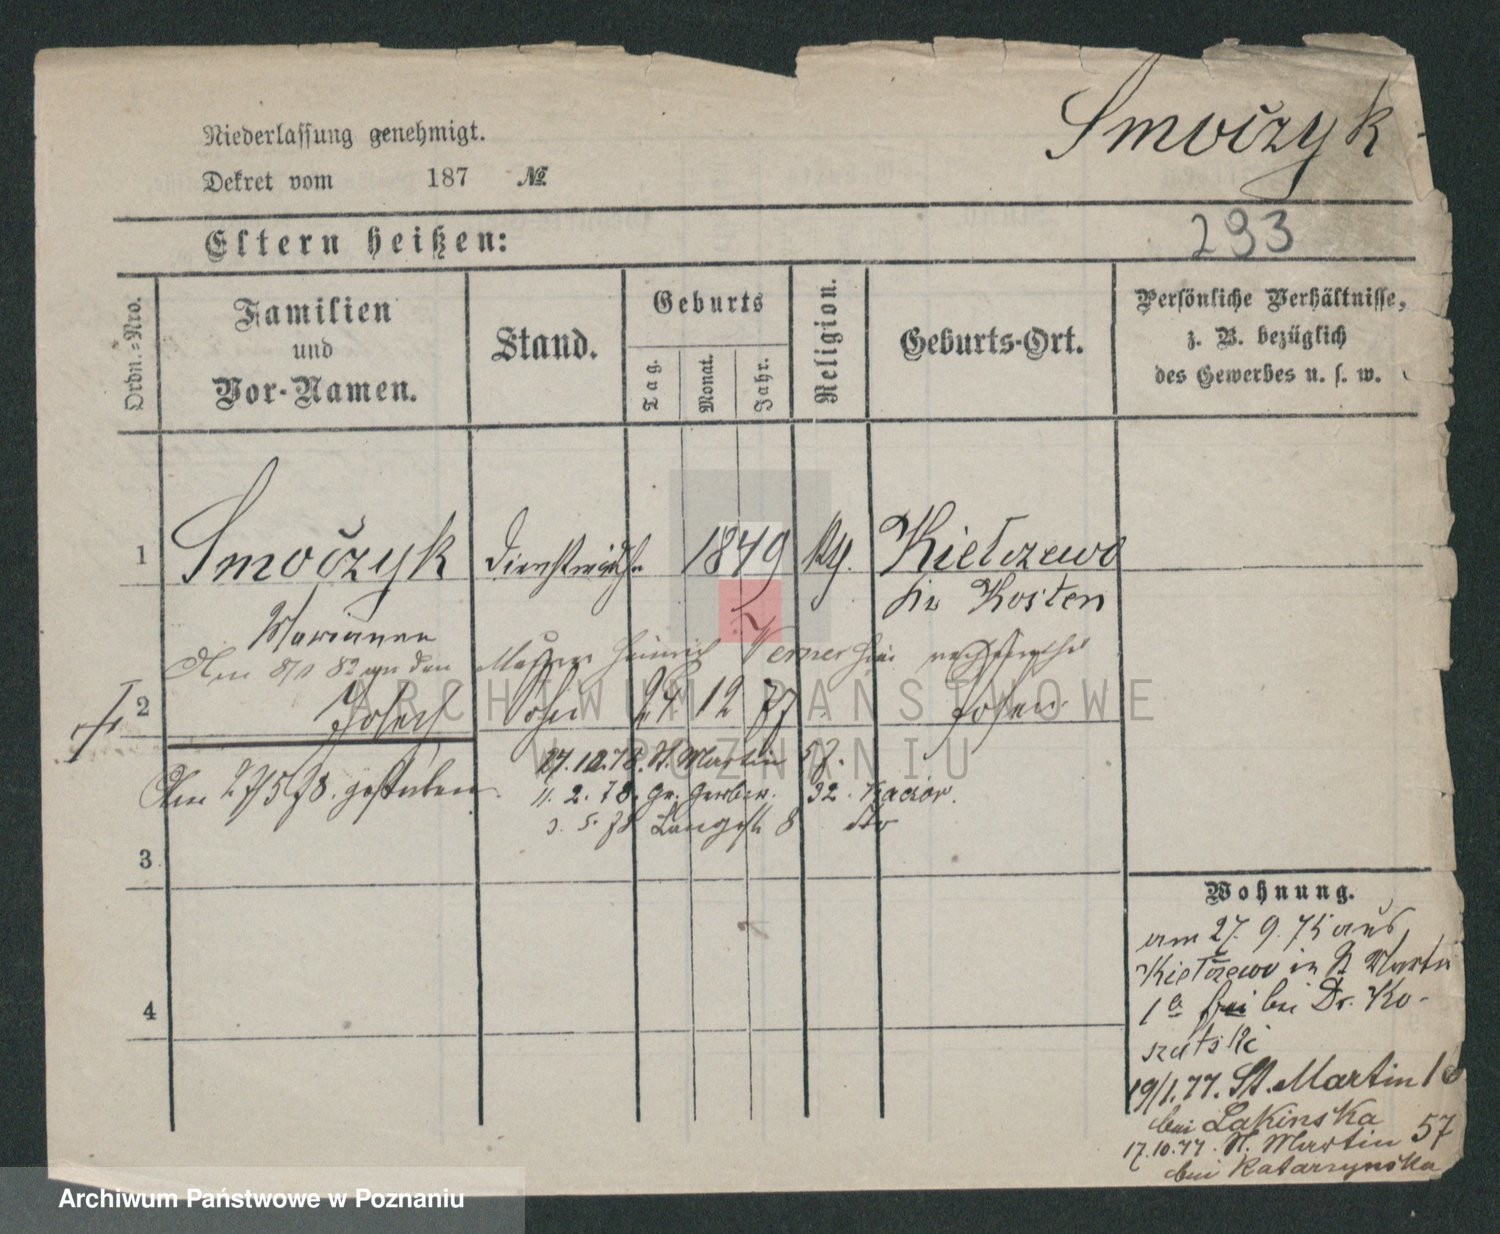 Smočzyk
Niederlassung genehmigt.
Dekret vom 187 №
293
Eltern heißen:
Ordn.-Nro.
Familien und Vor-Namen.
Stand.
Geburts
Tag.
Monat.
Jahr.
Religion.
Geburts-Ort.
Persönliche Verhältnisse,
z. B. bezüglich
des Gewerbes u. s. w.
1 Smočzyk 1849 Kielczewo
Marianna Kosten
Am 8/1 82 an den Heinrich Werner
2 Joseph Sohn 24 12 77 Posen
Am 27/5 78. gestorben
27.12.78. St. Martin 57.
11. 2. 78. Gr. Gerber. 32. Kacior.
3. 5. 78 Langestr 8 dto
3
4
Wohnung.
am 27. 9. 75 aus
Kielczewo in St Martin
1a bei Dr. Ko-
szutski
19/1.77. St. Martin
bei Lakinska
17.10.77. St. Martin 57
bei Katarzynska
ARCHIWUM PAŃSTWOWE
W POZNANIU
Archiwum Państwowe w Poznaniu